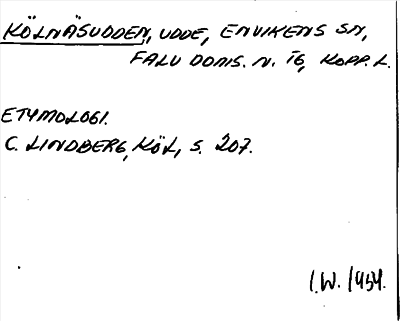 KÖLNÄSUDDEN, UDDE, ENVIKENS SN,
FALU DOMS. N. TG, KOPP. L.
ETYMOLOGI.
C. LINDBERG, KÖL, S. 207.
I.W. 1954.